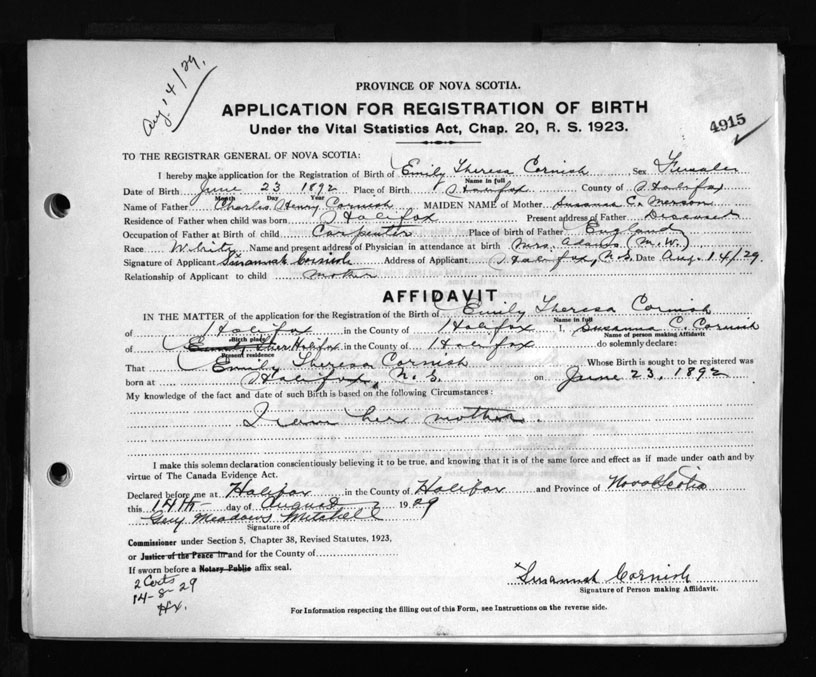 Aug. 14/29.
PROVINCE OF NOVA SCOTIA.
APPLICATION FOR REGISTRATION OF BIRTH
Under the Vital Statistics Act, Chap. 20, R. S. 1923.
4915
TO THE REGISTRAR GENERAL OF NOVA SCOTIA:
I hereby make application for the Registration of Birth of Emily Theresa Cornish Sex Female
Name in full
Date of Birth June 23 1892 Place of Birth Halifax County of Halifax
Month Day Year
Name of Father Charles Henry Cornish MAIDEN NAME of Mother Susanna C. Merson
Residence of Father when child was born Halifax Present address of Father Deceased
Occupation of Father at Birth of child Carpenter Place of birth of Father England
Race White Name and present address of Physician in attendance at birth Mrs. Adams (M.W.)
Signature of Applicant Susannah Cornish Address of Applicant Halifax, N.S. Date Aug. 14/29.
Relationship of Applicant to child mother
AFFIDAVIT
IN THE MATTER of the application for the Registration of the Birth of Emily Theresa Cornish
Name in full
of Halifax in the County of Halifax I, Susanna C. Cornish
Birth place Name of person making Affidavit
of Halifax in the County of Halifax do solemnly declare:
Present residence
That Emily Theresa Cornish Whose Birth is sought to be registered was
born at Halifax, N.S. on June 23, 1892
My knowledge of the fact and date of such Birth is based on the following Circumstances:
I am her mother.
I make this solemn declaration conscientiously believing it to be true, and knowing that it is of the same force and effect as if made under oath and by
virtue of The Canada Evidence Act.
Declared before me at Halifax in the County of Halifax and Province of Nova Scotia
this 14th day of August 1929
Guy Meadows Mitchell
Signature of
Commissioner under Section 5, Chapter 38, Revised Statutes, 1923,
or Justice of the Peace in and for the County of
If sworn before a Notary Public affix seal.
2 Certs
14-8-29
Hx.
Susannah Cornish
Signature of Person making Affidavit.
For Information respecting the filling out of this Form, see Instructions on the reverse side.